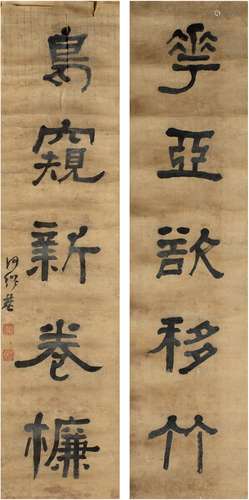 華亞欲移竹
鳥窺新卷簾
何紹基